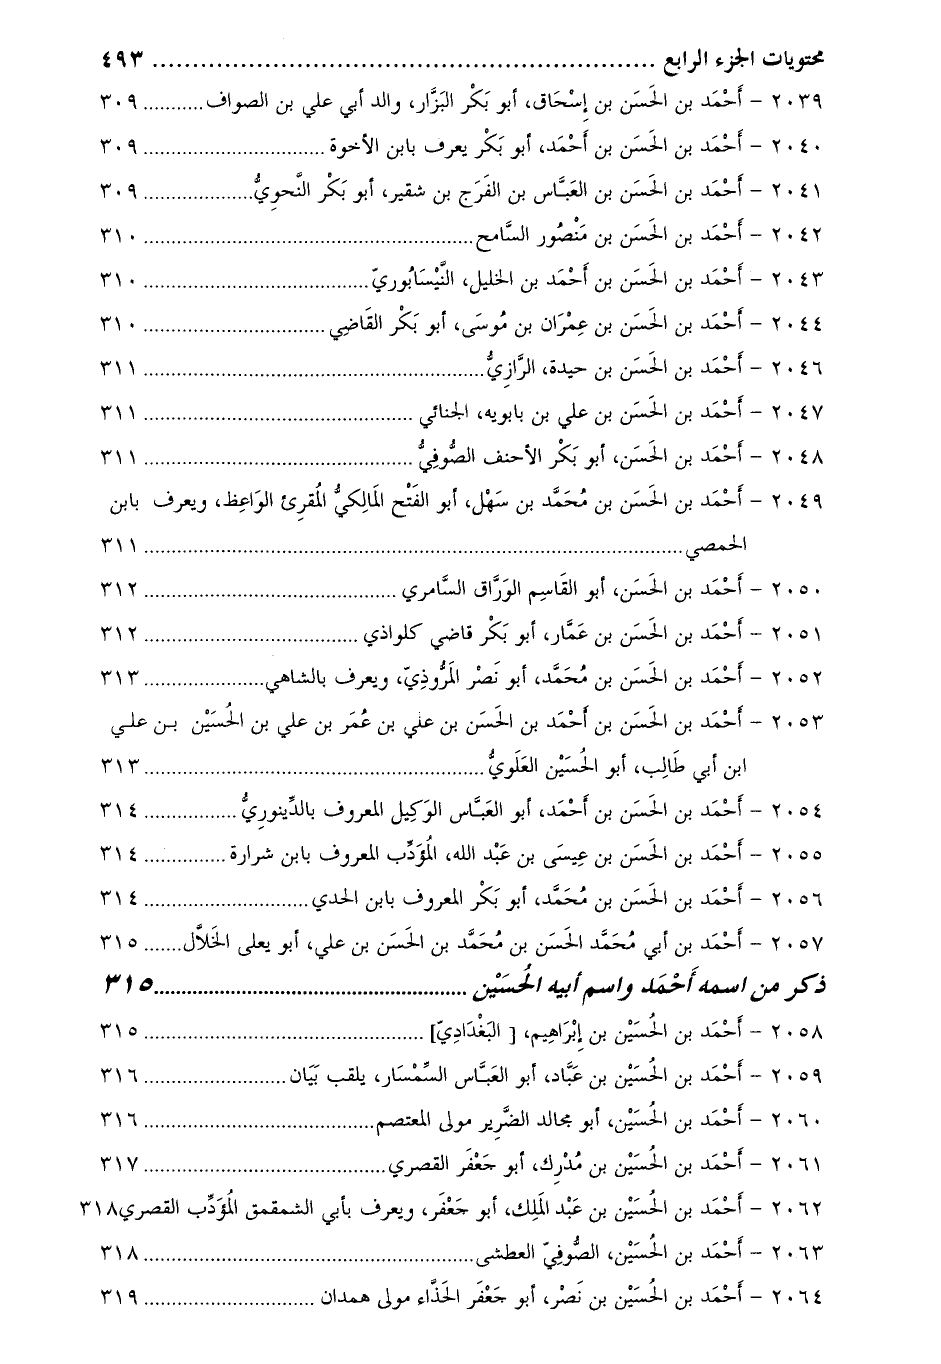 محتويات الجزء الرابع ........................................................ ٤٩٣
٢٠٣٩ – أَحْمَد بن الحَسَن بن إِسْحَاق، أبو بَكْر البَزَّار، والد أبي علي بن الصواف........... ٣٠٩
٢٠٤٠ – أَحْمَد بن الحَسَن بن أَحْمَد، أبو بَكْر يعرف بابن الأخوة ................................ ٣٠٩
٢٠٤١ – أَحْمَد بن الحَسَن بن العَبَّاس بن الفَرَج بن شقير، أبو بَكْر النَّحوِيُّ................... ٣٠٩
٢٠٤٢ – أَحْمَد بن الحَسَن بن مَنْصُور السَّامح.......................................................... ٣١٠
٢٠٤٣ – أَحْمَد بن الحَسَن بن أَحْمَد بن الخليل، النَّيْسَابُوريّ........................................ ٣١٠
٢٠٤٤ – أَحْمَد بن الحَسَن بن عِمْرَان بن مُوسَى، أبو بَكْر القَاضِي ................................ ٣١٠
٢٠٤٦ – أَحْمَد بن الحَسَن بن حيدة، الرَّازِيُّ............................................................ ٣١١
٢٠٤٧ – أَحْمَد بن الحَسَن بن علي بن بابويه، الحنائي ............................................... ٣١١
٢٠٤٨ – أَحْمَد بن الحَسَن، أبو بَكْر الأحنف الصُّوفِيُّ............................................... ٣١١
٢٠٤٩ – أَحْمَد بن الحَسَن بن مُحَمَّد بن سَهْل، أبو الفَتْح المَالِكيُّ المُقرئ الوَاعِظ، ويعرف بابن
الحمصي............................................................................................... ٣١١
٢٠٥٠ – أَحْمَد بن الحَسَن، أبو القَاسِم الوَرَّاق السَّامري ............................................. ٣١٢
٢٠٥١ – أَحْمَد بن الحَسَن بن عَمَّار، أبو بَكْر قاضي كلواذي ...................................... ٣١٢
٢٠٥٢ – أَحْمَد بن الحَسَن بن مُحَمَّد، أبو نَصْر المَرُّوذِيّ، ويعرف بالشاهي..................... ٣١٣
٢٠٥٣ – أَحْمَد بن الحَسَن بن أَحْمَد بن الحَسَن بن علي بن عُمَر بن علي بن الحُسَيْن بـن علـي
ابن أبي طَالِب، أبو الحُسَيْن العَلَويُّ............................................................ ٣١٣
٢٠٥٤ – أَحْمَد بن الحَسَن بن أَحْمَد، أبو العَبَّاس الوَكِيل المعروف بالدِّينوريُّ................ ٣١٤
٢٠٥٥ – أَحْمَد بن الحَسَن بن عِيسَى بن عَبْد الله، المُؤَدِّب المعروف بابن شرارة .............. ٣١٤
٢٠٥٦ – أَحْمَد بن الحَسَن بن مُحَمَّد، أبو بَكْر المعروف بابن الحدي ............................. ٣١٤
٢٠٥٧ – أَحْمَد بن أبي مُحَمَّد الحَسَن بن مُحَمَّد بن الحَسَن بن علي، أبو يعلى الخَلاَّل....... ٣١٥
ذكر من اسمه أَحْمَد واسم أبيه الحُسَيْن .................................................... ٣١٥
٢٠٥٨ – أَحْمَد بن الحُسَيْن بن إِبْرَاهِيم، [ البَغْدَادِيّ] ................................................. ٣١٥
٢٠٥٩ – أَحْمَد بن الحُسَيْن بن عَبَّاد، أبو العَبَّاس السِّمْسَار، يلقب بَيَان......................... ٣١٦
٢٠٦٠ – أَحْمَد بن الحُسَيْن، أبو مجالد الضَّرِير مولى المعتصم........................................ ٣١٦
٢٠٦١ – أَحْمَد بن الحُسَيْن بن مُدْرِك، أبو جَعْفَر القصري.......................................... ٣١٧
٢٠٦٢ – أَحْمَد بن الحُسَيْن بن عَبْد المَلِك، أبو جَعْفَر، ويعرف بأبي الشمقمق المُؤَدِّب القصري٣١٨
٢٠٦٣ – أَحْمَد بن الحُسَيْن، الصُّوفِيّ العطشى.......................................................... ٣١٨
٢٠٦٤ – أَحْمَد بن الحُسَيْن بن نَصْر، أبو جَعْفَر الحَذَّاء مولى همدان .............................. ٣١٩